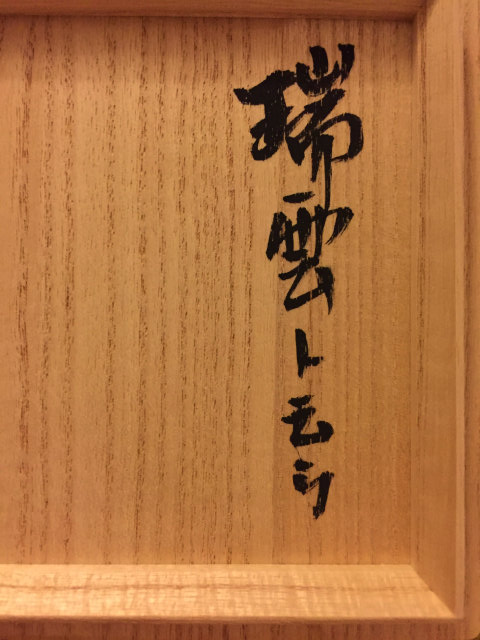 瑞雲トモシ